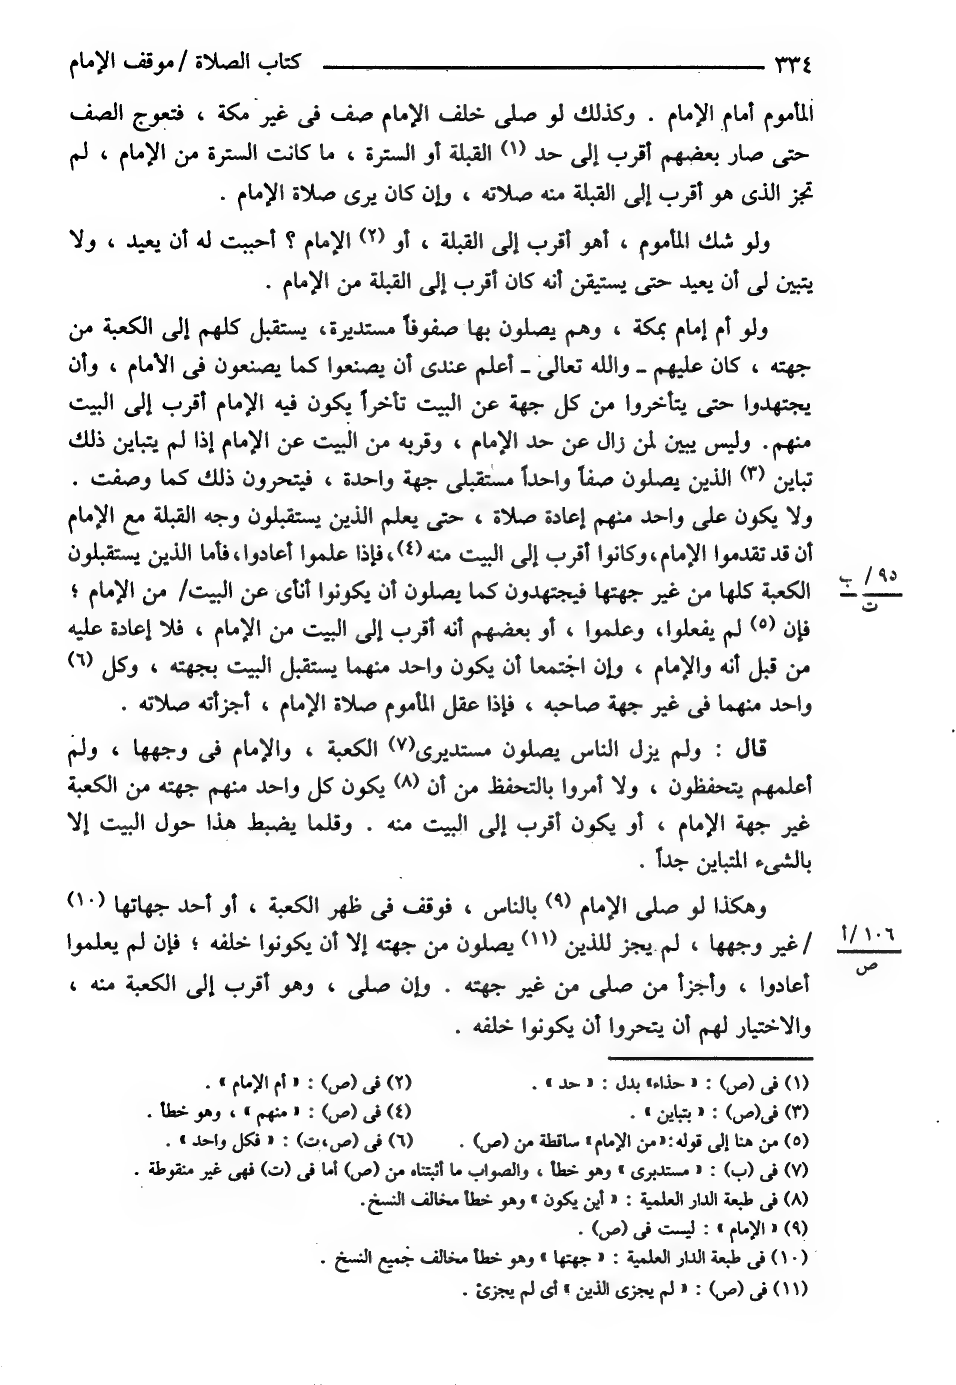 ٣٣٤ ــــــ كتاب الصلاة / موقف الإمام
المأموم أمام الإمام . وكذلك لو صلى خلف الإمام صف فى غير مكة ، فتعوج الصف
حتى صار بعضهم أقرب إلى حد (١) القبلة أو السترة ، ما كانت السترة من الإمام ، لم
تجز الذى هو أقرب إلى القبلة منه صلاته ، وإن كان يرى صلاة الإمام .
ولو شك المأموم ، أهو أقرب إلى القبلة ، أو (٢) الإمام ؟ أحببت له أن يعيد ، ولا
يتبين لى أن يعيد حتى يستيقن أنه كان أقرب إلى القبلة من الإمام .
ولو أم إمام بمكة ، وهم يصلون بها صفوفاً مستديرة، يستقبل كلهم إلى الكعبة من
جهته ، كان عليهم ـ والله تعالى ـ أعلم عندى أن يصنعوا كما يصنعون فى الأمام ، وأن
يجتهدوا حتى يتأخروا من كل جهة عن البيت تأخراً يكون فيه الإمام أقرب إلى البيت
منهم. وليس يبين لمن زال عن حد الإمام ، وقربه من البيت عن الإمام إذا لم يتباين ذلك
تباين (٣) الذين يصلون صفاً واحداً مستقبلى جهة واحدة ، فيتحرون ذلك كما وصفت .
ولا يكون على واحد منهم إعادة صلاة ، حتى يعلم الذين يستقبلون وجه القبلة مع الإمام
أن قد تقدموا الإمام، وكانوا أقرب إلى البيت منه (٤)، فإذا علموا أعادوا، فأما الذين يستقبلون
الكعبة كلها من غير جهتها فيجتهدون كما يصلون أن يكونوا أنأى عن البيت/ من الإمام ؛
٩٥/ ب
ت
فإن (٥) لم يفعلوا، وعلموا ، أو بعضهم أنه أقرب إلى البيت من الإمام ، فلا إعادة عليه
من قبل أنه والإمام ، وإن اجتمعا أن يكون واحد منهما يستقبل البيت بجهته ، وكل (٦)
واحد منهما فى غير جهة صاحبه ، فإذا عقل المأموم صلاة الإمام ، أجزأته صلاته .
قال : ولم يزل الناس يصلون مستديرى(٧) الكعبة ، والإمام فى وجهها ، ولم
أعلمهم يتحفظون ، ولا أمروا بالتحفظ من أن (٨) يكون كل واحد منهم جهته من الكعبة
غير جهة الإمام ، أو يكون أقرب إلى البيت منه . وقلما يضبط هذا حول البيت إلا
بالشىء المتباين جداً .
وهكذا لو صلى الإمام (٩) بالناس ، فوقف فى ظهر الكعبة ، أو أحد جهاتها (١٠)
/ غير وجهها ، لم يجز للذين (١١) يصلون من جهته إلا أن يكونوا خلفه ؛ فإن لم يعلموا
١٠٦ /أ
ص
أعادوا ، وأجزأ من صلى من غير جهته . وإن صلى ، وهو أقرب إلى الكعبة منه ،
والاختيار لهم أن يتحروا أن يكونوا خلفه .
(١) فى (ص) : « حذاء» بدل : « حد » . (٢) فى (ص) : « أم الإمام » .
(٣) فى(ص) : « بتباين » . (٤) فى (ص) : « منهم » ، وهو خطأ .
(٥) من هنا إلى قوله: «من الإمام» ساقطة من (ص) . (٦) فى (ص،ت) : « فكل واحد » .
(٧) فى (ب) : « مستدبرى » وهو خطأ ، والصواب ما أثبتناه من (ص) أما فى (ت) فهى غير منقوطة .
(٨) فى طبعة الدار العلمية : « أين يكون » وهو خطأ مخالف النسخ.
(٩) « الإمام » : ليست فى (ص) .
(١٠) فى طبعة الدار العلمية : « جهتها » وهو خطأ مخالف جميع النسخ .
(١١) فى (ص) : « لم يجزى الذين » أى لم يجزئ .